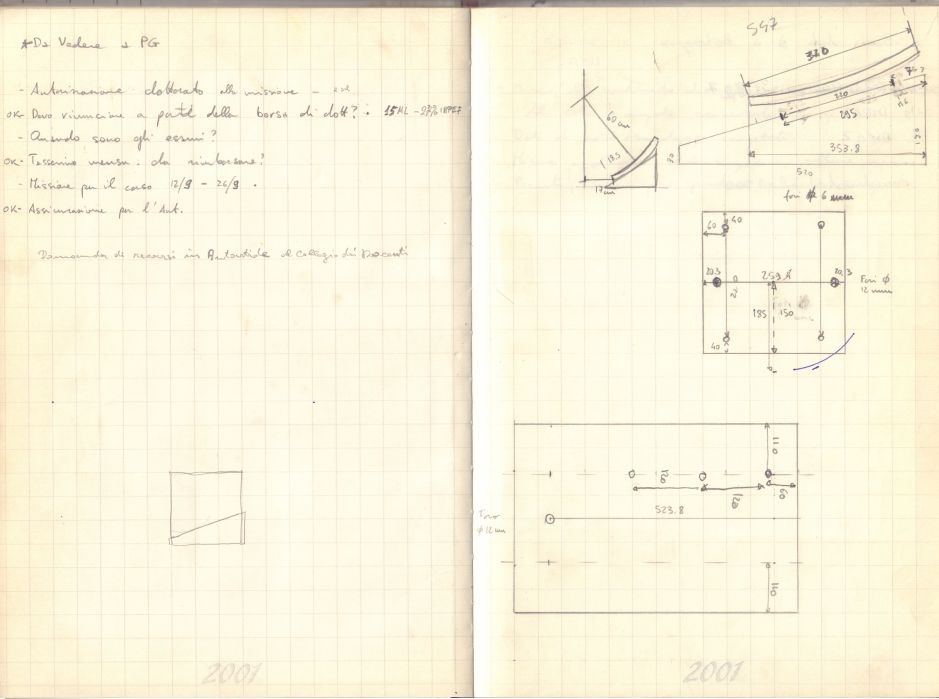 *Da Vedere a PG
- Autorizzazione dottorato alla missione -
OK- Devo rinunciare a parte della borsa di dott? : 15ML - 27% IRPEF
- Quando sono gli esami?
OK- Tesserino mensa. da rimborsare?
- Missione per il corso 12/9 - 26/9 .
OK- Assicurazione per l'Aut.
Domanda di recarsi in Antartide al Collegio dei Docenti
2001
547
320
75
220
295
60 cm
18.5
17 cm
20
353.8
130
520
fori ϕ 6 mm
60
40
20.3
259.4
20.3
Fori ϕ
12 mm
185
150
40
110
120
120
60
523.8
Foro
ϕ 12 mm
110
2001